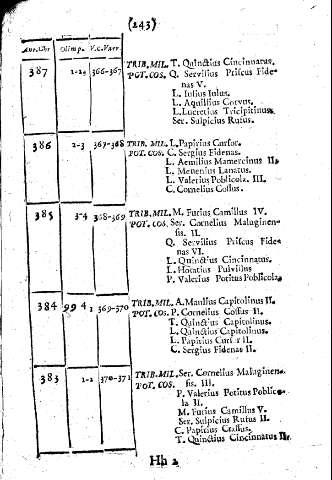 (243)
Ant. Chr Olimp. V.C. Varr.
387 1-2 366-367 TRIB. MIL. T. Quinctius Cincinnatus.
POT. COS. Q. Servilius Priscus Fide-
nas V.
L. Iulius Iulus.
L. Aquillius Corvus.
L. Lucretius Tricipitinus.
Ser. Sulpicius Rufus.
386 2-3 367-368 TRIB. MIL. L. Papirius Cursor.
POT. COS. C. Sergius Fidenas.
L. Aemilius Mamercinus II.
L. Menenius Lanatus.
L. Valerius Poblicola. III.
C. Cornelius Cossus.
385 3-4 368-369 TRIB. MIL. M. Furius Camillus IV.
POT. COS. Ser. Cornelius Maluginen-
sis. II.
Q. Servilius Priscus Fide-
nas VI.
L. Quinctius Cincinnatus.
L. Horatius Pulvillus
P. Valerius Potitus Poblicola.
384 99 4 1 369-370 TRIB. MIL. A. Manlius Capitolinus II.
POT. COS. P. Cornelius Cossus II.
T. Quinctius Capitolinus.
L. Quinctius Capitolinus.
L. Papirius Cursor II.
C. Sergius Fidenas II.
383 1-2 370-371 TRIB. MIL. Ser. Cornelius Maluginen-
POT. COS. sis. III.
P. Valerius Potitus Poblico-
la II.
M. Furius Camillus V.
Ser. Sulpicius Rufus II.
C. Papirius Crassus.
T. Quinctius Cincinnatus II.
Hh 2